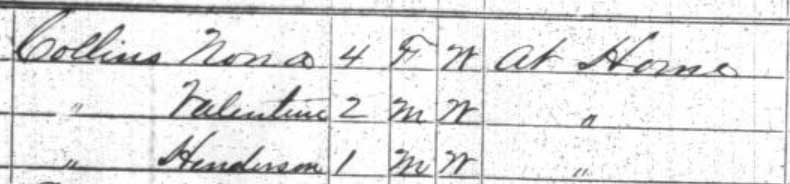 Collins Nona 4 F W At Home
" Valentine 2 M W "
" Henderson 1 M W "